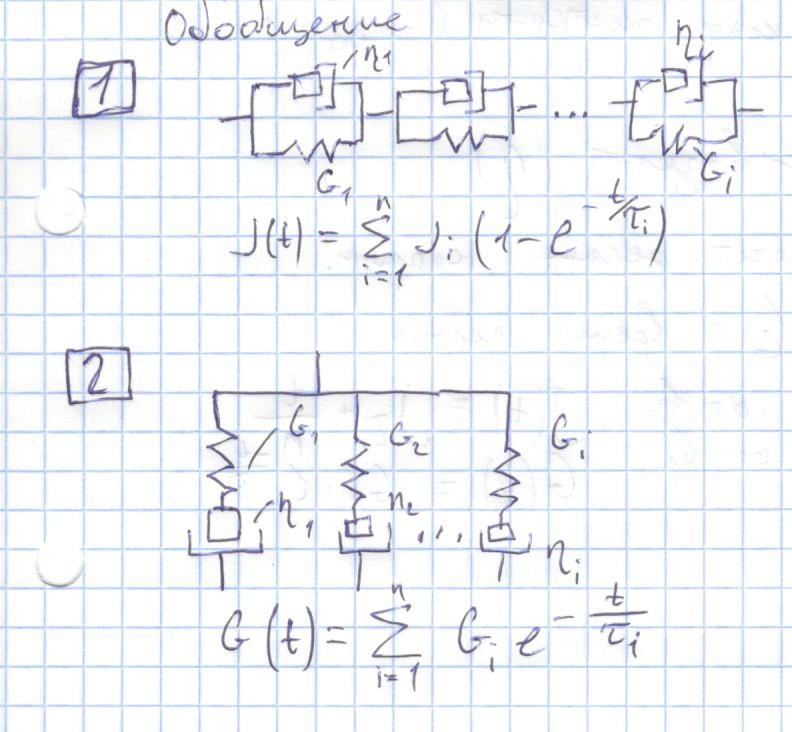 Обобщение
1
η₁ ... ηᵢ
G₁ Gᵢ
J(t) = Σᵢ₌₁ⁿ Jᵢ (1 - e^(-t/τᵢ))
2
G₁ G₂ Gᵢ
η₁ η₂ ... ηᵢ
G(t) = Σᵢ₌₁ⁿ Gᵢ e^(-t/τᵢ)